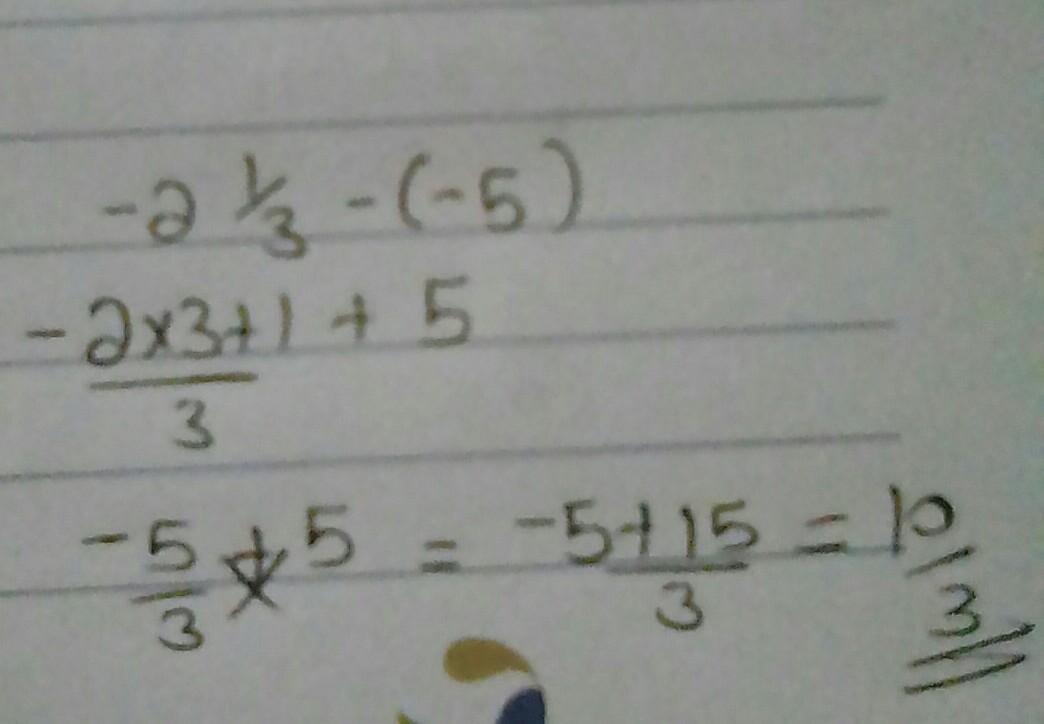 -2 1/3 - (-5)
- 2x3+1 + 5
3
-5/3 + 5 = -5+15/3 = 10/3